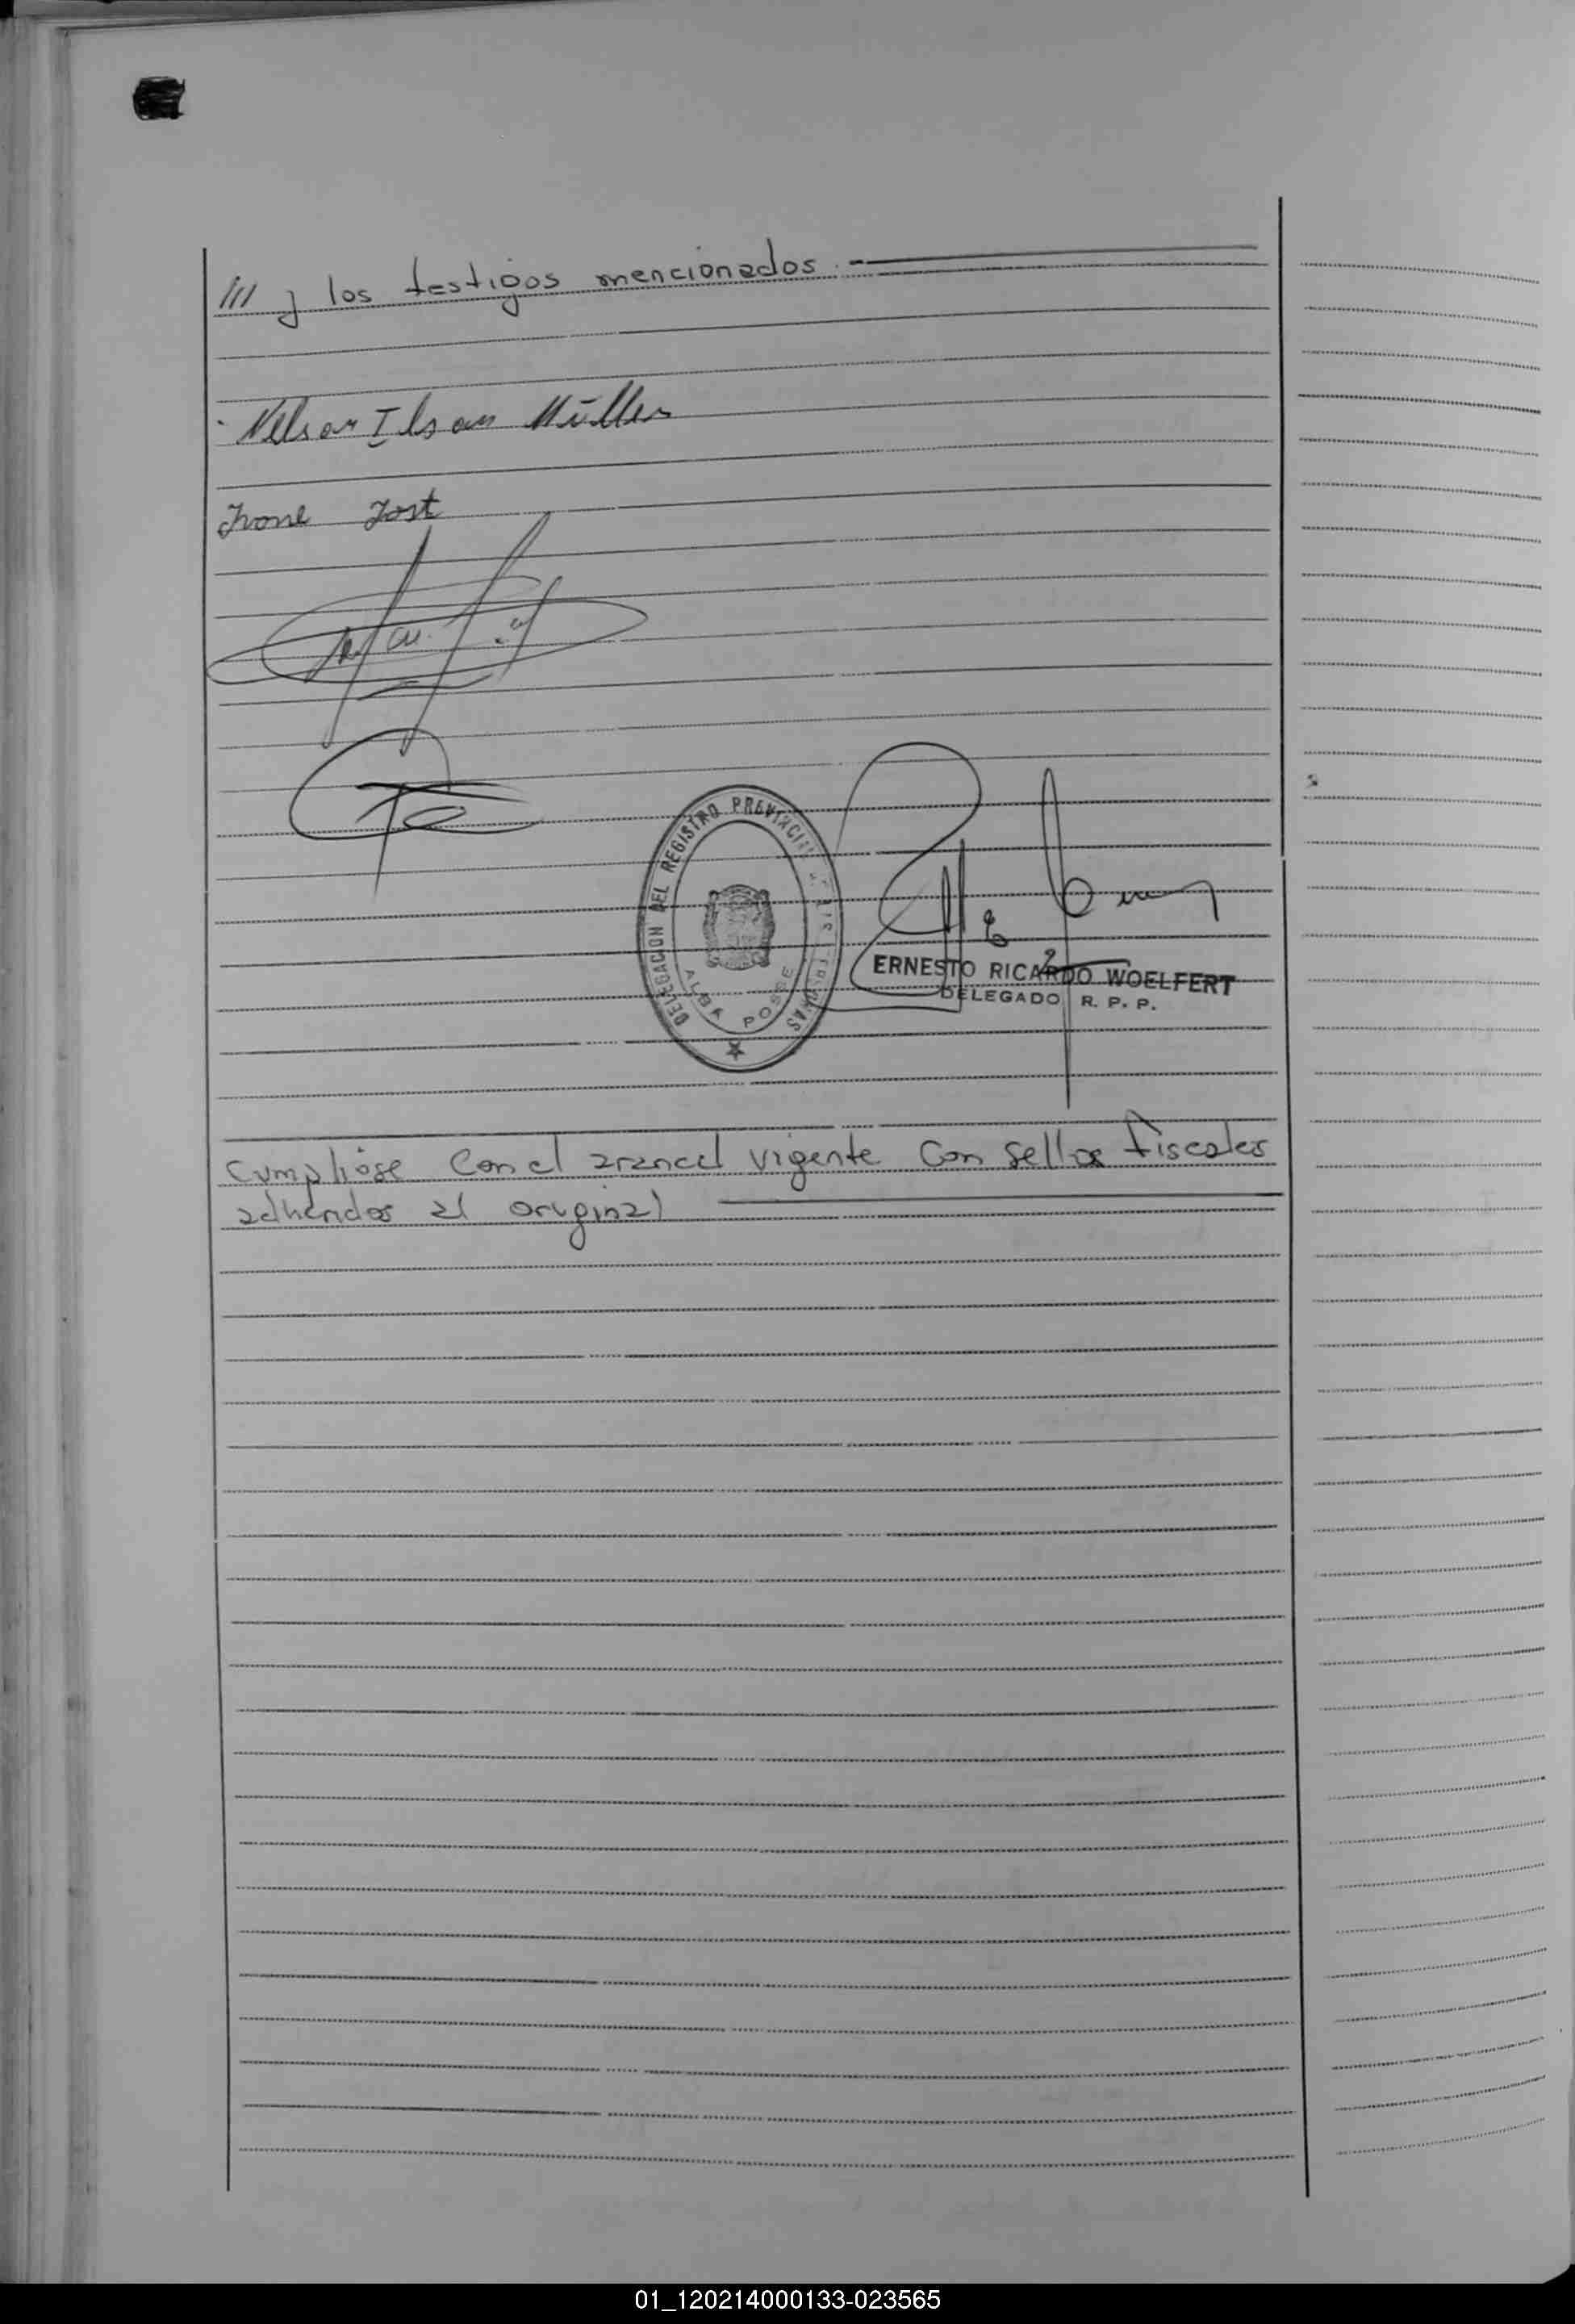 /// y los testigos mencionados.
Nelson Ilson Müller
Ivone Jost
DELEGACION DEL REGISTRO PROVINCIAL DE LAS PERSONAS
ALBA POSSE
ERNESTO RICARDO WOELFERT
DELEGADO R. P. P.
Cumplióse con el arancel vigente con sellos fiscales
adheridos al original
01_120214000133-023565